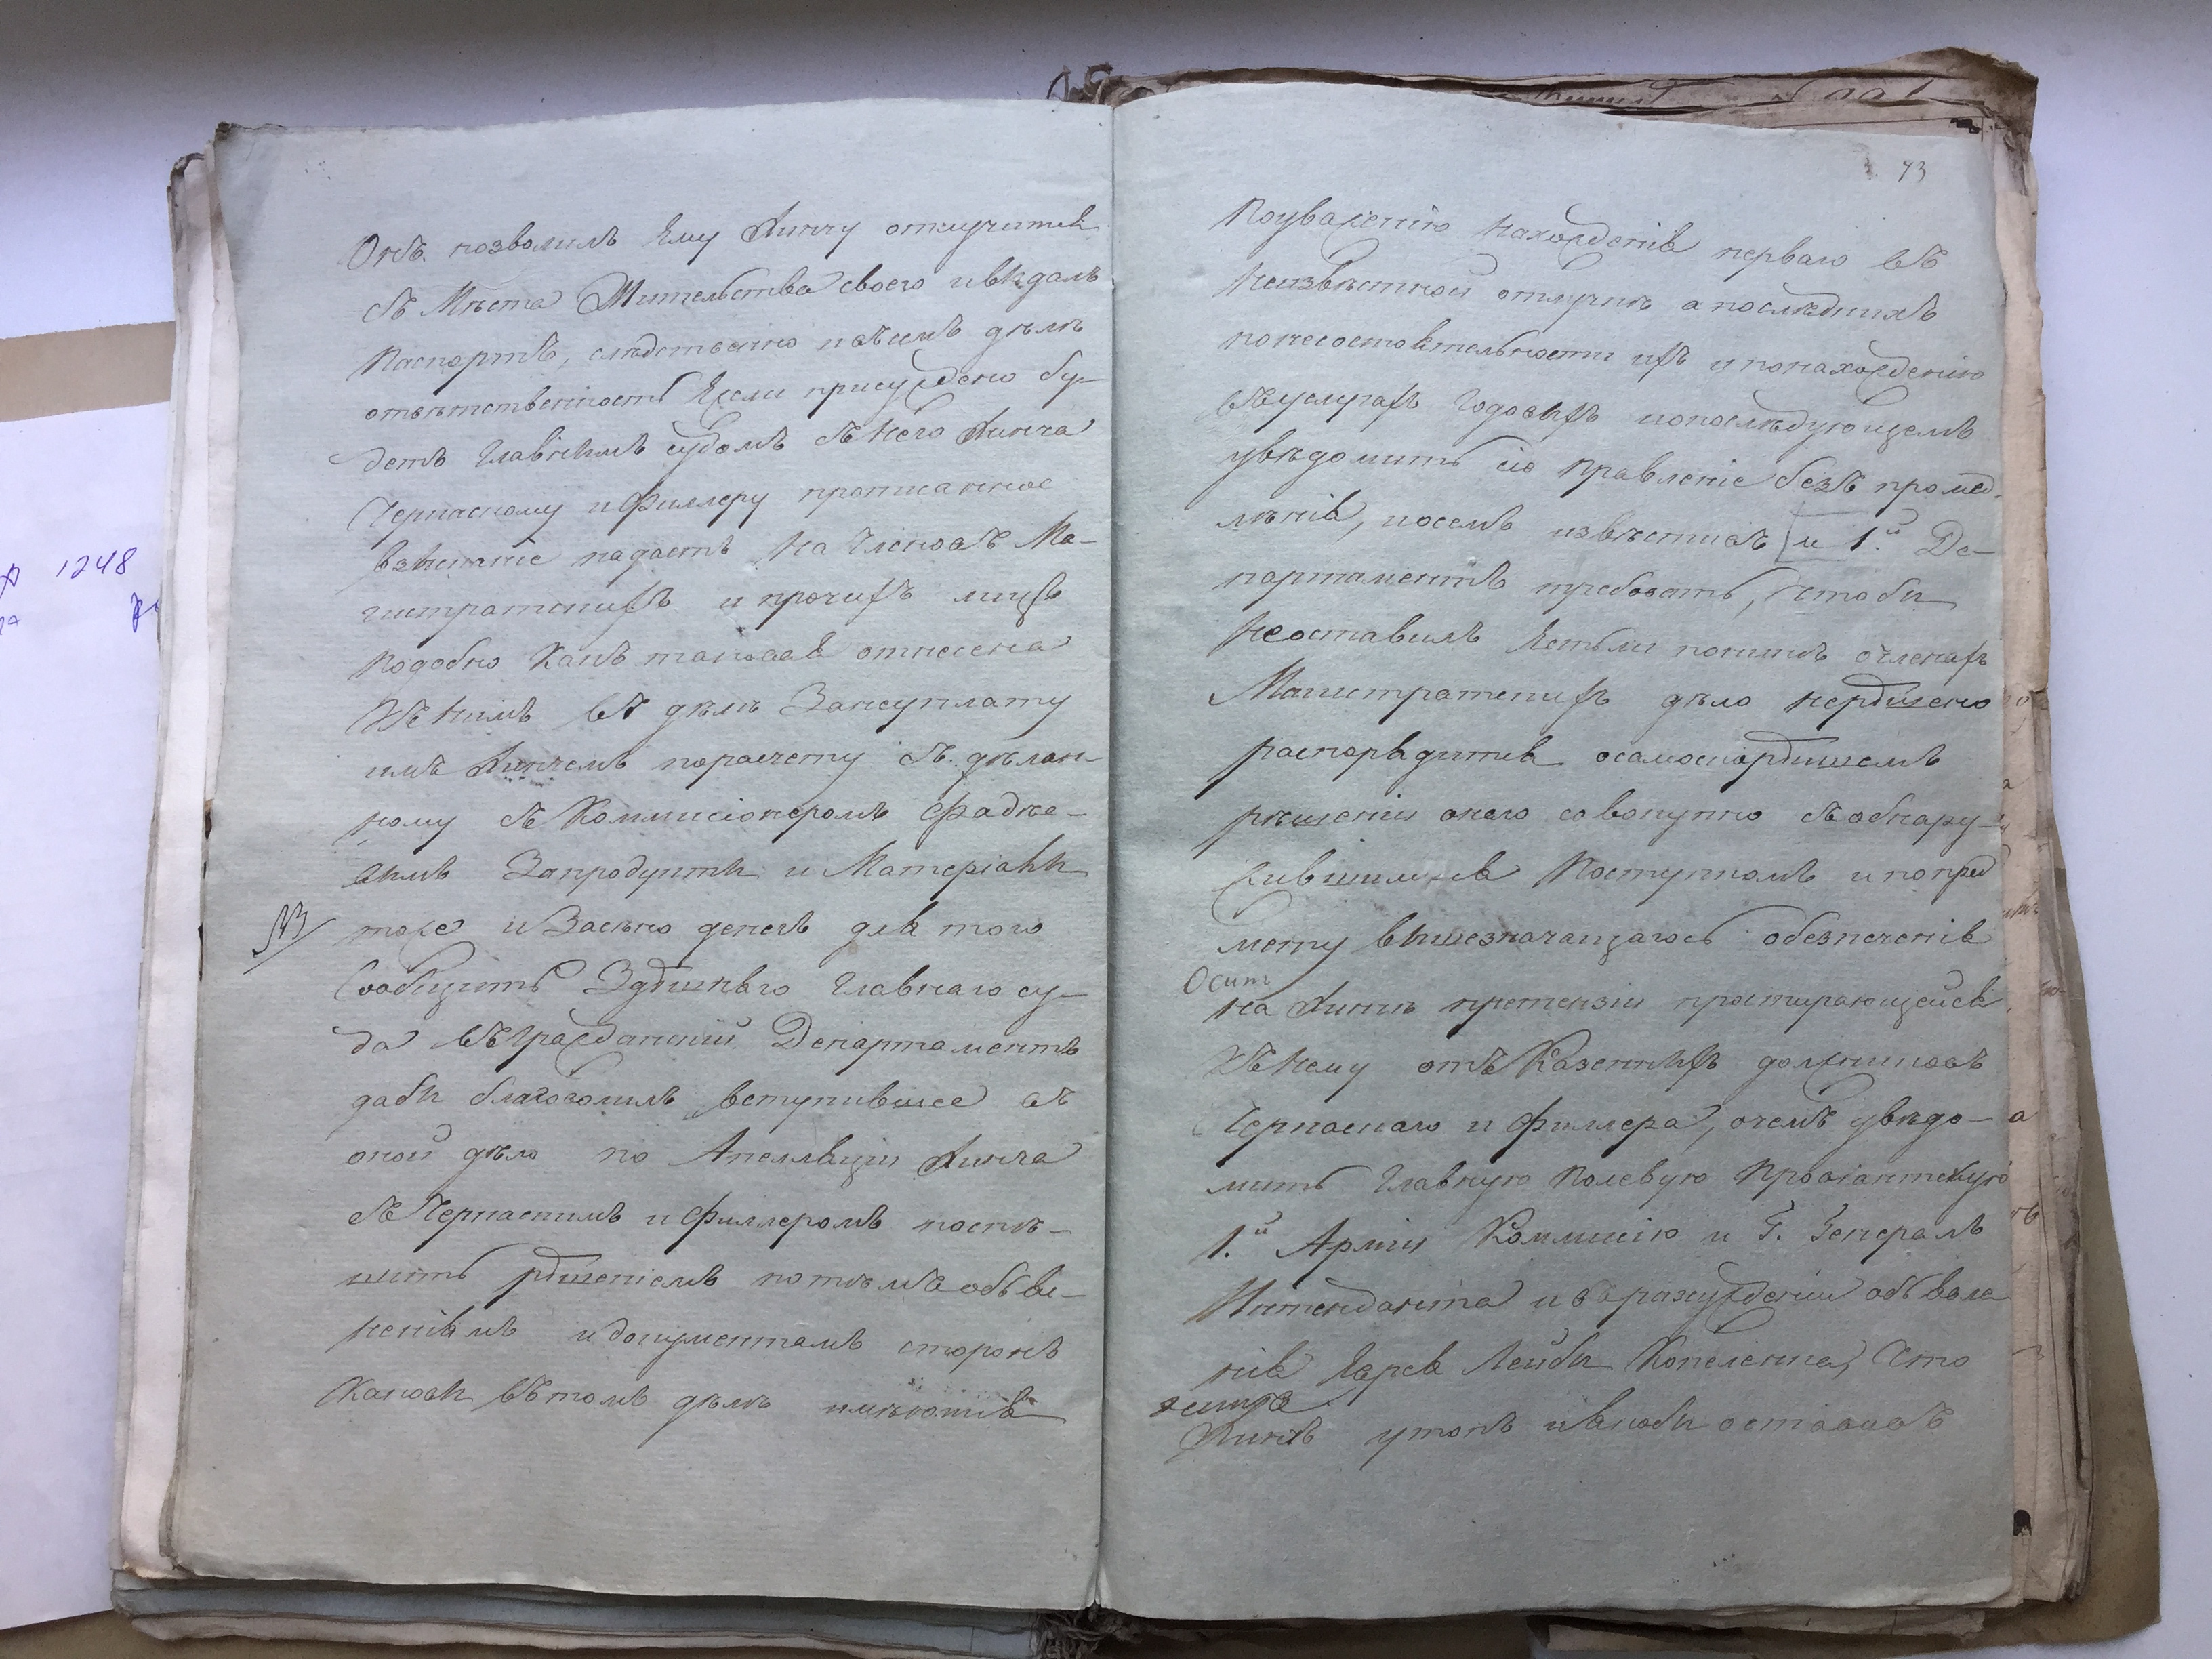 Онъ позволилъ Ему Линчу отлучится
съ Мѣста Жительства своего и выдалъ
Паспортъ, слѣдственно и въ семъ дѣлѣ
отвѣтственность Если присуждено бу-
детъ Главнымъ судомъ съ Него Линча
Чернаскому и Филлеру прописанное
взысканіе падаетъ на Членовъ Ма-
гистратскихъ и прочихъ лицъ
подобно Какъ таковая отнесена
Къ нимъ въ дѣлѣ За неуплату
имъ Линчемъ по расчету съ дѣлан-
ному съ Коммисіонеромъ Фадѣе-
вымъ За продукты и Матеріалы
тоже и За сѣно денегъ для того
Сообщить Здѣшняго Главнаго су-
да въ Гражданскій Департаментъ
дабы благоволилъ вступившее въ
оной дѣло по Апелляціи Линча
съ Чернаскимъ и Филлеромъ поспѣ-
шить рѣшеніемъ по тѣмъ объяс-
неніямъ и документамъ сторонъ
Каковы въ томъ дѣлѣ имѣются
73
По уваженію нахожденія перваго въ
Неизвѣстной отлучкѣ а послѣднихъ
по несостоятельности ихъ и по нахожденію
въ услугахъ Годовыхъ и о послѣдующемъ
увѣдомить сіе Правленіе безъ промед-
лѣнія, и о семъ извѣстивъ и 1.й Де-
партаментъ требовать, Чтобы
Не оставилъ Естьли понынѣ о членахъ
Магистратскихъ дѣло нерѣшено
распорядится о самоскорѣйшемъ
рѣшеніи онаго совокупно съ обнару-
жившимся Поступкомъ и по пред
мету вышезначащагось обезпеченія
Осип
на Линчѣ претензіи простирающейся
Къ нему отъ Казенныхъ должниковъ
Чернаскаго и Филлера, о чемъ увѣдо-
мить Главную Полевую Провіантскую
1.й Арміи Коммисію и Г. Генералъ
Интенданта и въ разсужденіи объявле
нія Еврея Лейбы Копеленка, Что
Линчъ утопъ и якобы оставивъ